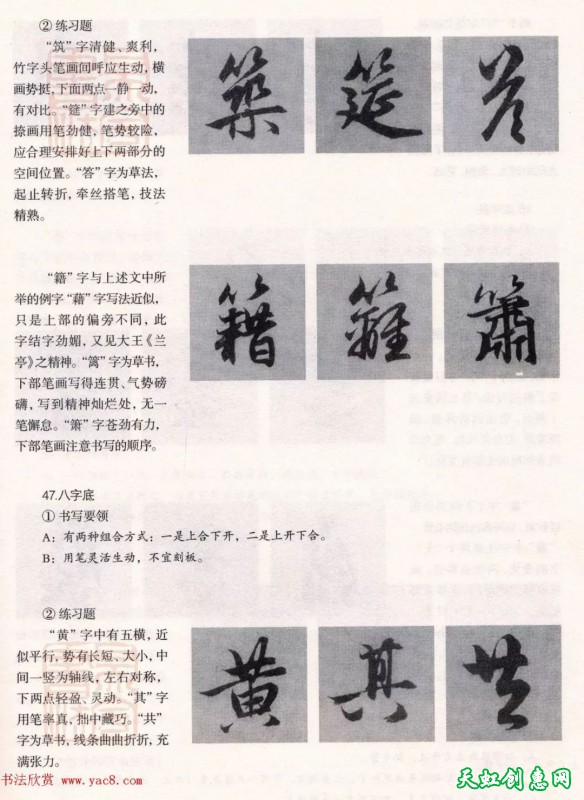 ② 练习题
“筑”字清健、爽利，
竹字头笔画间呼应生动，横
画势挺，下面两点一静一动，
有对比。“筵”字建之旁中的
捺画用笔劲健、笔势较险，
应合理安排好上下两部分的
空间位置。“答”字为草法，
起止转折，牵丝搭笔，技法
精熟。
築 筵 答
“籍”字与上述文中所
举的例字“藉”字写法近似，
只是上部的偏旁不同，此
字结字劲媚，又见大王《兰
亭》之精神。“篱”字为草书，
下部笔画写得连贯、气势磅
礴，写到精神灿烂处，无一
笔懈怠。“箫”字苍劲有力，
下部笔画注意书写的顺序。
籍 籬 簫
47.八字底
① 书写要领
A：有两种组合方式：一是上合下开，二是上开下合。
B：用笔灵活生动，不宜刻板。
② 练习题
“黄”字中有五横，近
似平行，势有长短、大小，中
间一竖为轴线，左右对称，
下两点轻盈、灵动。“其”字
用笔率真，拙中藏巧。“共”
字为草书，线条曲曲折折，充
满张力。
黄 其 共
书法欣赏 www.yac8.com
天虹创意网